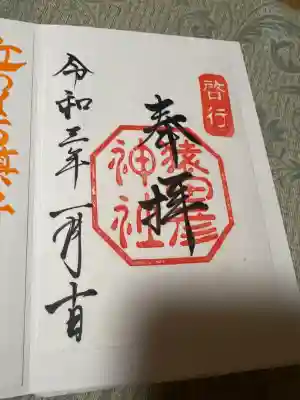 啓行
奉拝
猿田彦
神社
令和三年一月十日